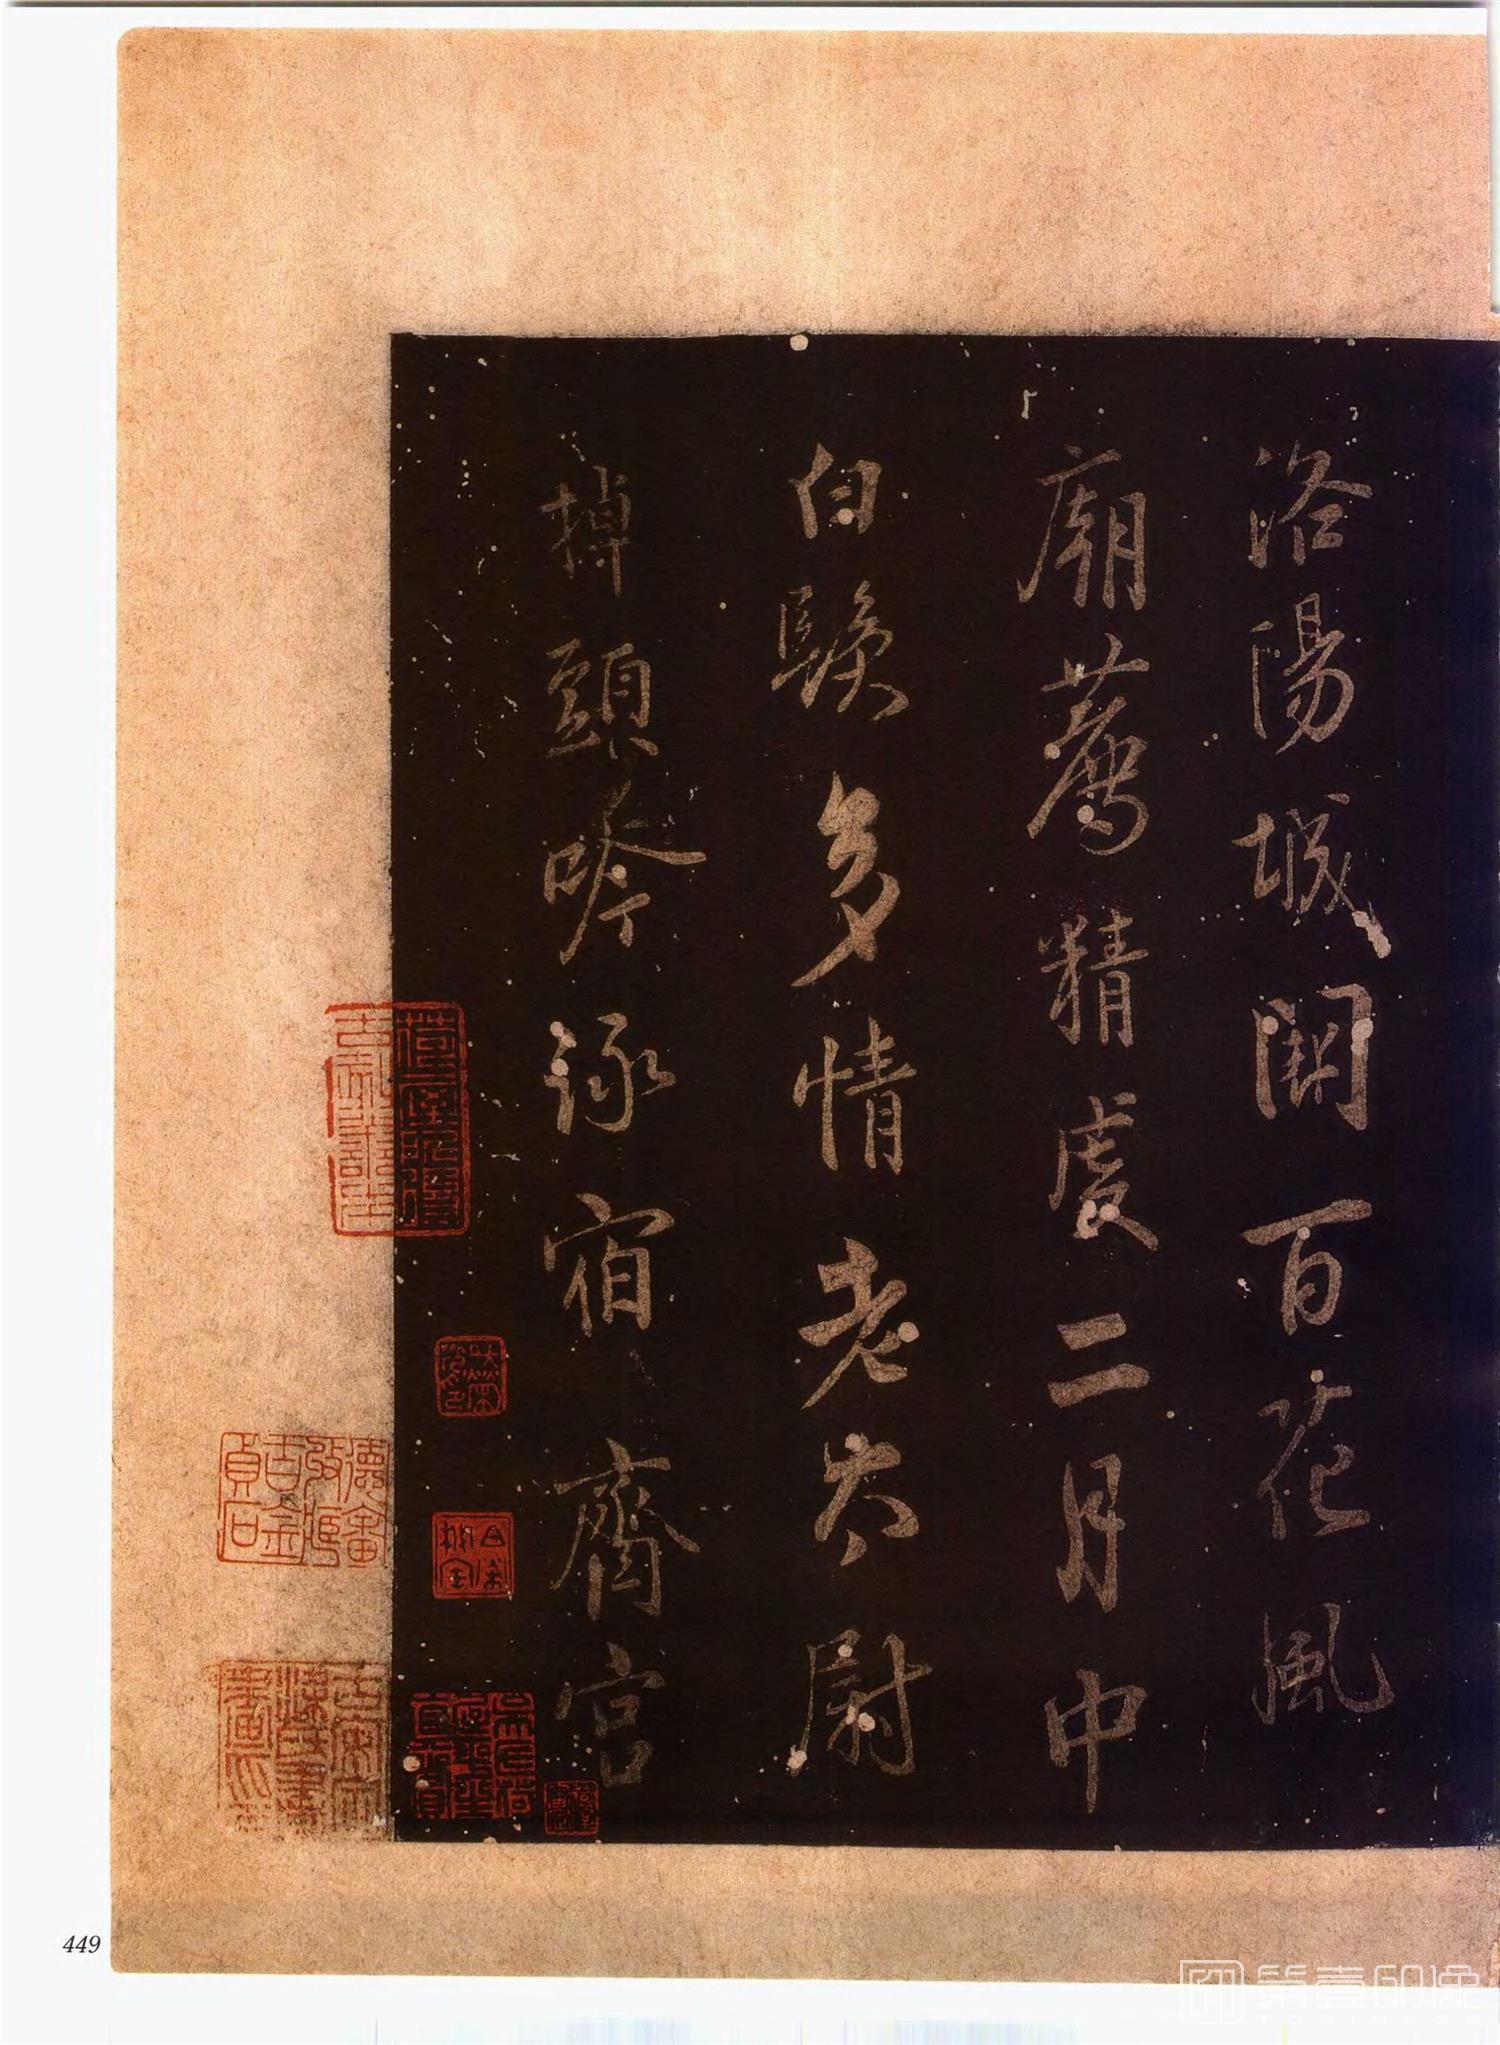 洛陽城闕百花風
廟薦精虔二月中
白髮多情老太尉
掉頭吟詠宿齊宮
449
第壹印像